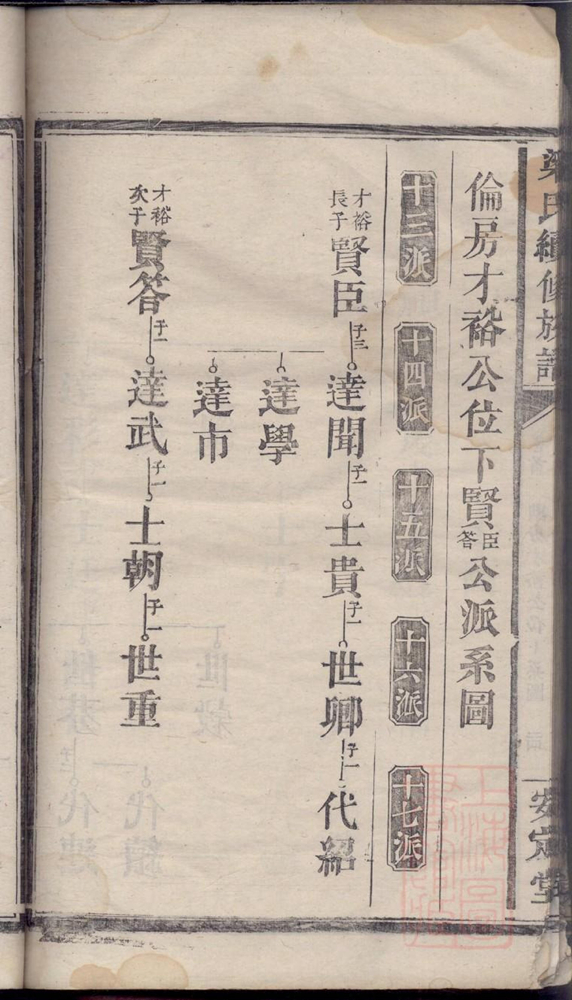 梁氏續修族譜
安定堂
倫房才裕公位下賢臣答公派系圖
十三派 十四派 十五派 十六派 十七派
才裕長子 賢臣 子三 達聞 子一 士貴 子一 世卿 子一 代紹
達學
達市
才裕次子 賢答 子一 達武 子一 士朝 子一 世重